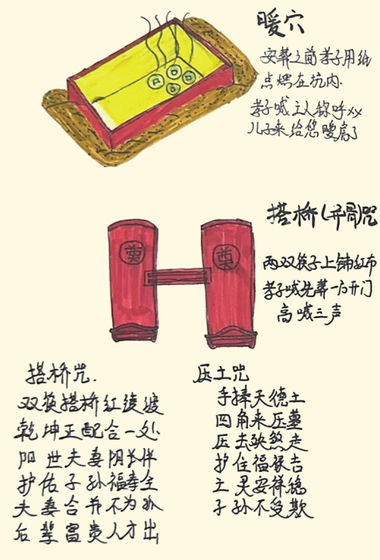 暖穴
安葬之前孝子用纸
点燃在坑内.
孝子喊主人称呼XX
儿子来给您暖房了
搭桥(开骨)咒
两双筷子上铺红布
孝子喊先葬一方开门
高喊三声
奠
奠
搭桥咒.
双筷搭桥红绫渡
乾坤正配合一处
阳世夫妻阴长伴
护佑子孙福寿全
夫妻合并不为孤
后辈富贵人才出
压土咒
手捧天德土
四角来压墓
压去殃煞走
护住福禄吉
土灵安祥稳
子孙不受欺